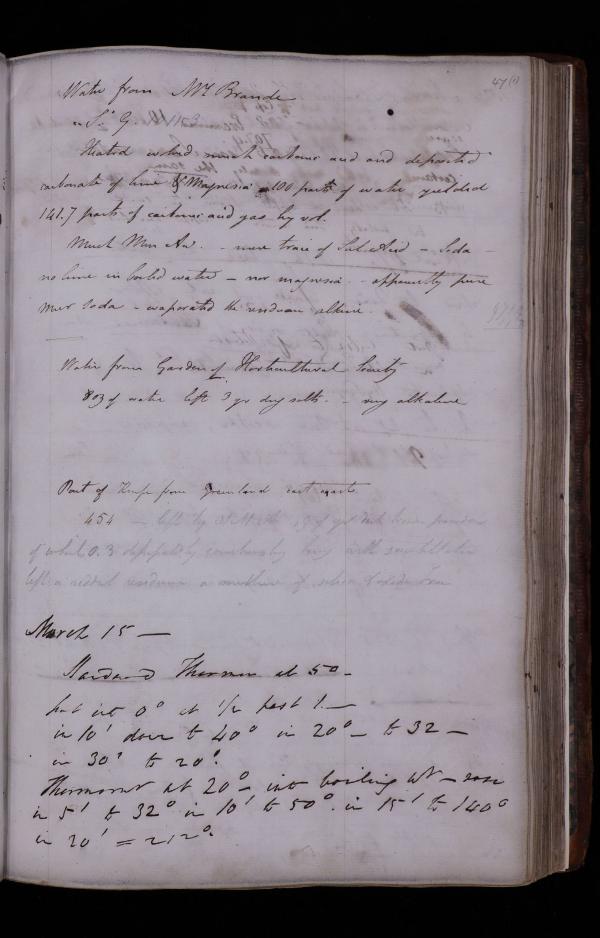 47 (1)
Water from Mr Brande
S. G.
Heated evolved much carbonic acid and deposited
carbonate of lime & Magnesia 100 parts of water yielded
141.7 parts of carbonic acid gas by vol.
Much Mur Ac. - mere trace of Sul Acid - Soda -
no lime in boiled water - nor magnesia - apparently pure
Mur Soda - evaporated the residuum alkaline.
Water from Garden of Horticultural Society
8 oz of water left 3 gr dry salts - very alkaline
Part of from Greenland east coast
454 - left by
of which 0.3 by with
left a residuum a of silica & oxide iron
March 15 -
Standard Thermom at 50 -
put into 0° at 1/2 past 1 -
in 10' down to 40° in 20° - to 32 -
in 30' to 20°.
Thermomt at 20° - into boiling Wt - rose
in 5' to 32° in 10' to 50° in 15' to 140°
in 20' = 212°.